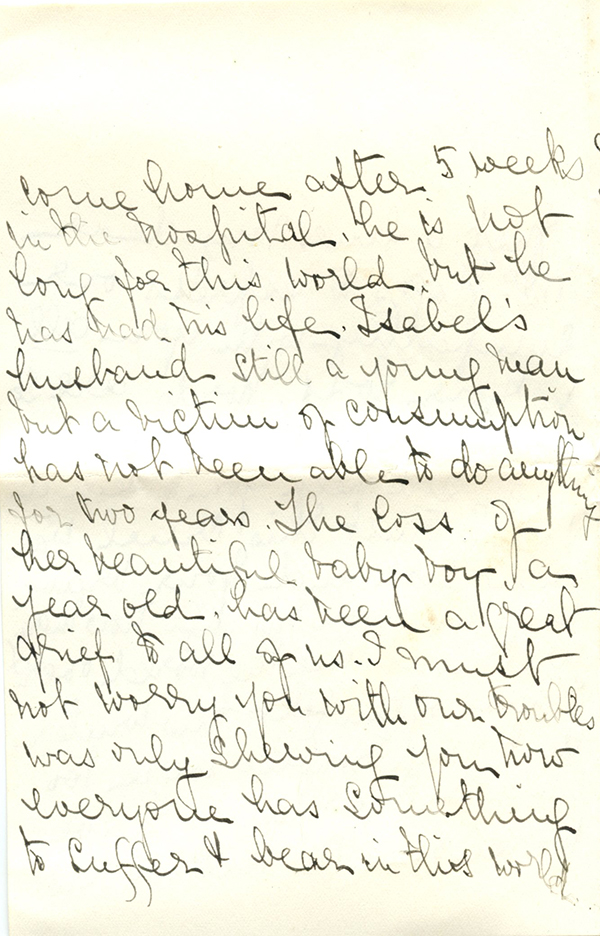 come home after 5 weeks
in the hospital. he is not
long for this world. but he
has had his life. Isabel's
husband still a young man
but a victim of consumption
has not been able to do anything
for two years. The loss of
her beautiful baby boy a
year old. has been a great
grief to all of us. I must
not worry you with our troubles
was only shewing you how
everyone has something
to suffer & bear in this world.